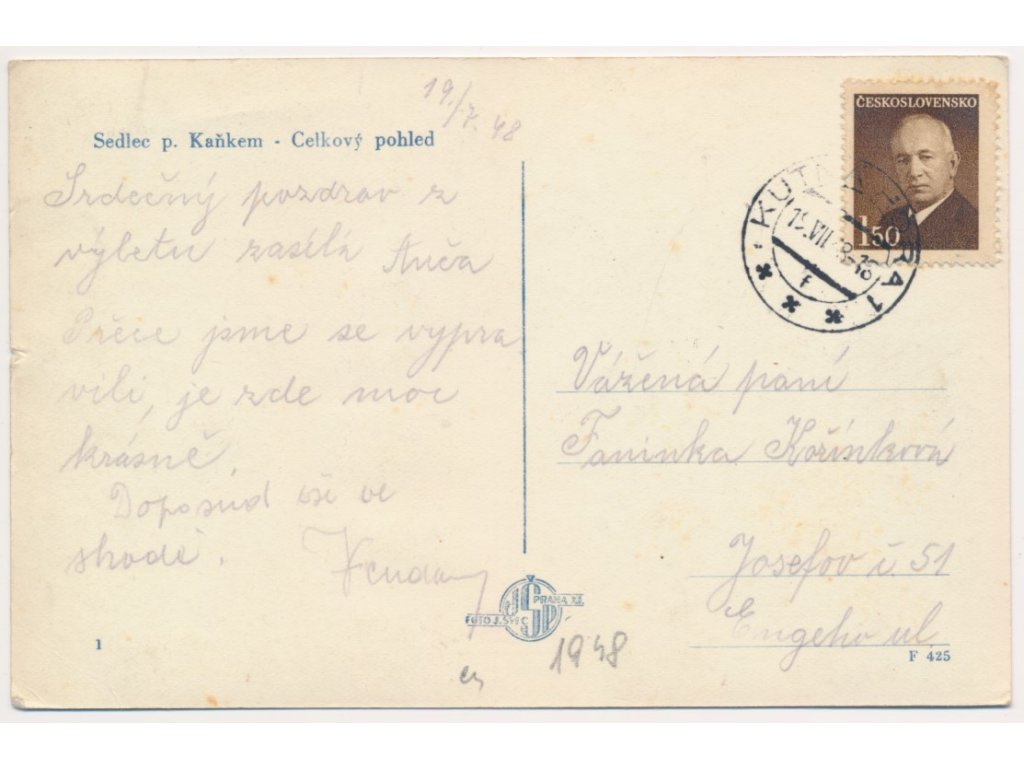 19./7. 48
Sedlec p. Kaňkem - Celkový pohled
Srdečný pozdrav z
výletu zasílá Anča
Přece jsme se vypra
vili, je zde moc
krásně.
Doposud vši ve
shodě.
Venda
ČESKOSLOVENSKO
1.50
KUTNÁ HORA 1
19.VII.48-18
f
Vážená paní
Faninka Kořínková
Josefov č. 51
Engeho ul.
FOTO J. ŠVEC
PRAHA XI.
JŠP
1
F 425
1948